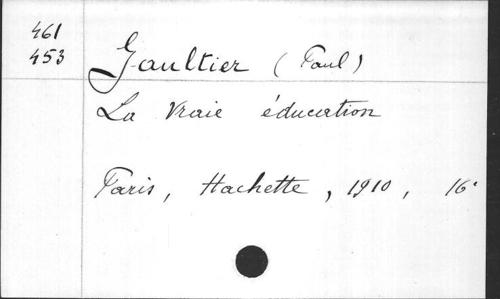 461
453
Gaultier (Paul)
La Vraie éducation
Paris, Hachette, 1910, 16°